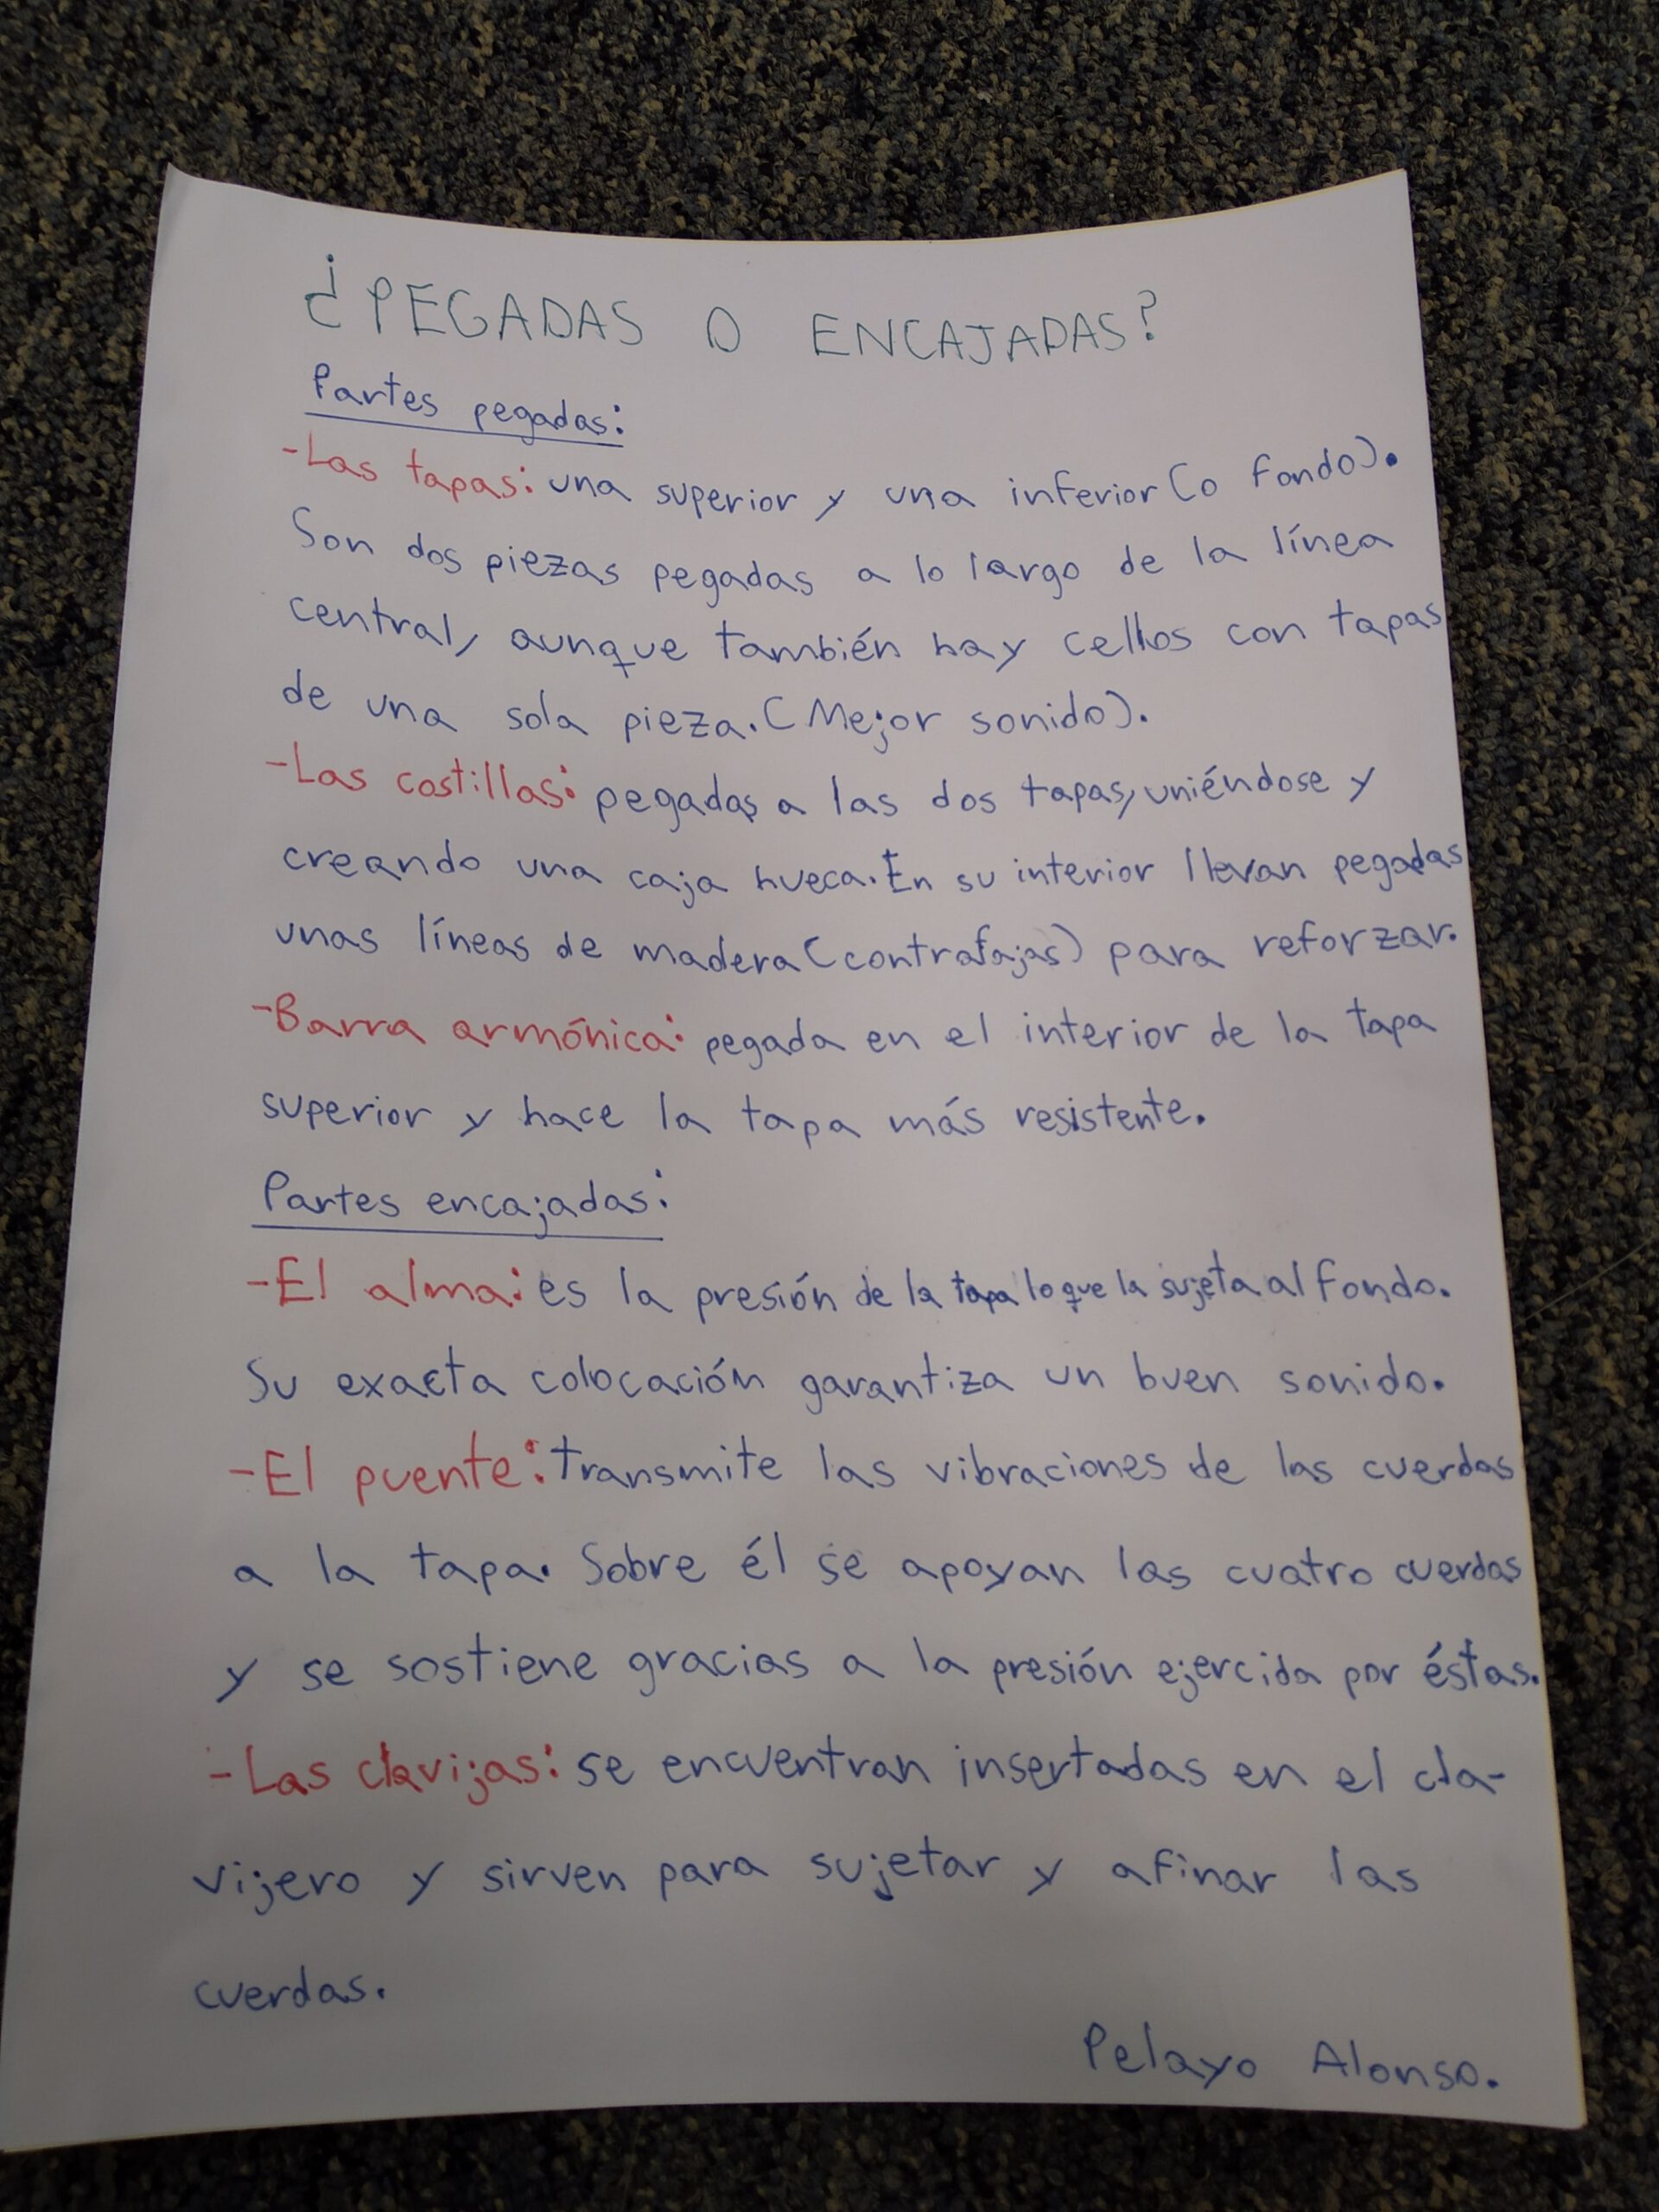 ¿PEGADAS O ENCAJADAS?
Partes pegadas:
-Las tapas: una superior y una inferior (o fondo).
Son dos piezas pegadas a lo largo de la línea
central, aunque también hay cellos con tapas
de una sola pieza. (Mejor sonido).
-Las costillas: pegadas a las dos tapas, uniéndose y
creando una caja hueca. En su interior llevan pegadas
unas líneas de madera (contrafajas) para reforzar.
-Barra armónica: pegada en el interior de la tapa
superior y hace la tapa más resistente.
Partes encajadas:
-El alma: es la presión de la tapa lo que la sujeta al fondo.
Su exacta colocación garantiza un buen sonido.
-El puente: transmite las vibraciones de las cuerdas
a la tapa. Sobre él se apoyan las cuatro cuerdas
y se sostiene gracias a la presión ejercida por éstas.
-Las clavijas: se encuentran insertadas en el cla-
vijero y sirven para sujetar y afinar las
cuerdas.
Pelayo Alonso.